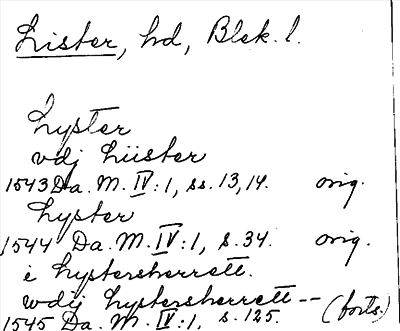 Lister, hd, Blek. l.
Lyster
vdj Lüster
1543 Da. M. IV:1, ss. 13, 14. orig.
Lyster
1544 Da. M. IV:1, s. 34. orig.
i Lystersherrett.
wdij Lystersherrett -- (forts.)
1545 Da. M. IV:1, s. 125.